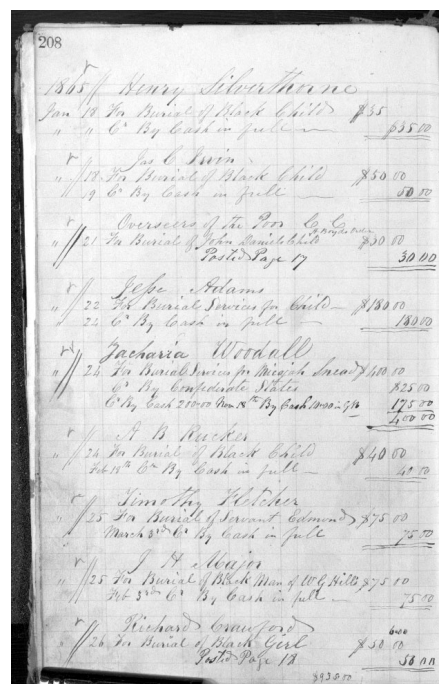 208
1865 Henry Silverthorne
Jan 18 For Burial of Black Child $35
" " Cr By Cash in full $35 00
Jas C Irvin
" 18 For Burial of Black Child $50 00
" 19 Cr By Cash in full 50 00
Overseers of the Poor C C
" 21 For Burial of John Daniels Child $30 00
Posted Page 17 30 00
Jesse Adams
" 22 For Burial Services for Child $180 00
" 22 Cr By Cash in full 180 00
Zacharia Woodall
" 24 For Burial Services for Micajah Snead $400 00
Cr By Confederate States
Cr By Cash Nov 18th By Cash 175 00
400 00
A B Rucker
" 24 For Burial of Black Child $40 00
Feb 18th Cr By Cash in full 40 00
Timothy Fletcher
" 25 For Burial of Servant Edmond $75 00
March 3rd Cr By Cash in full 75 00
J H Major
" 25 For Burial of Black Man of W G Hills $75 00
Feb 3rd Cr By Cash in full 75 00
Richard Crawford
" 26 For Burial of Black Girl $50 00
Posted Page 12 50 00